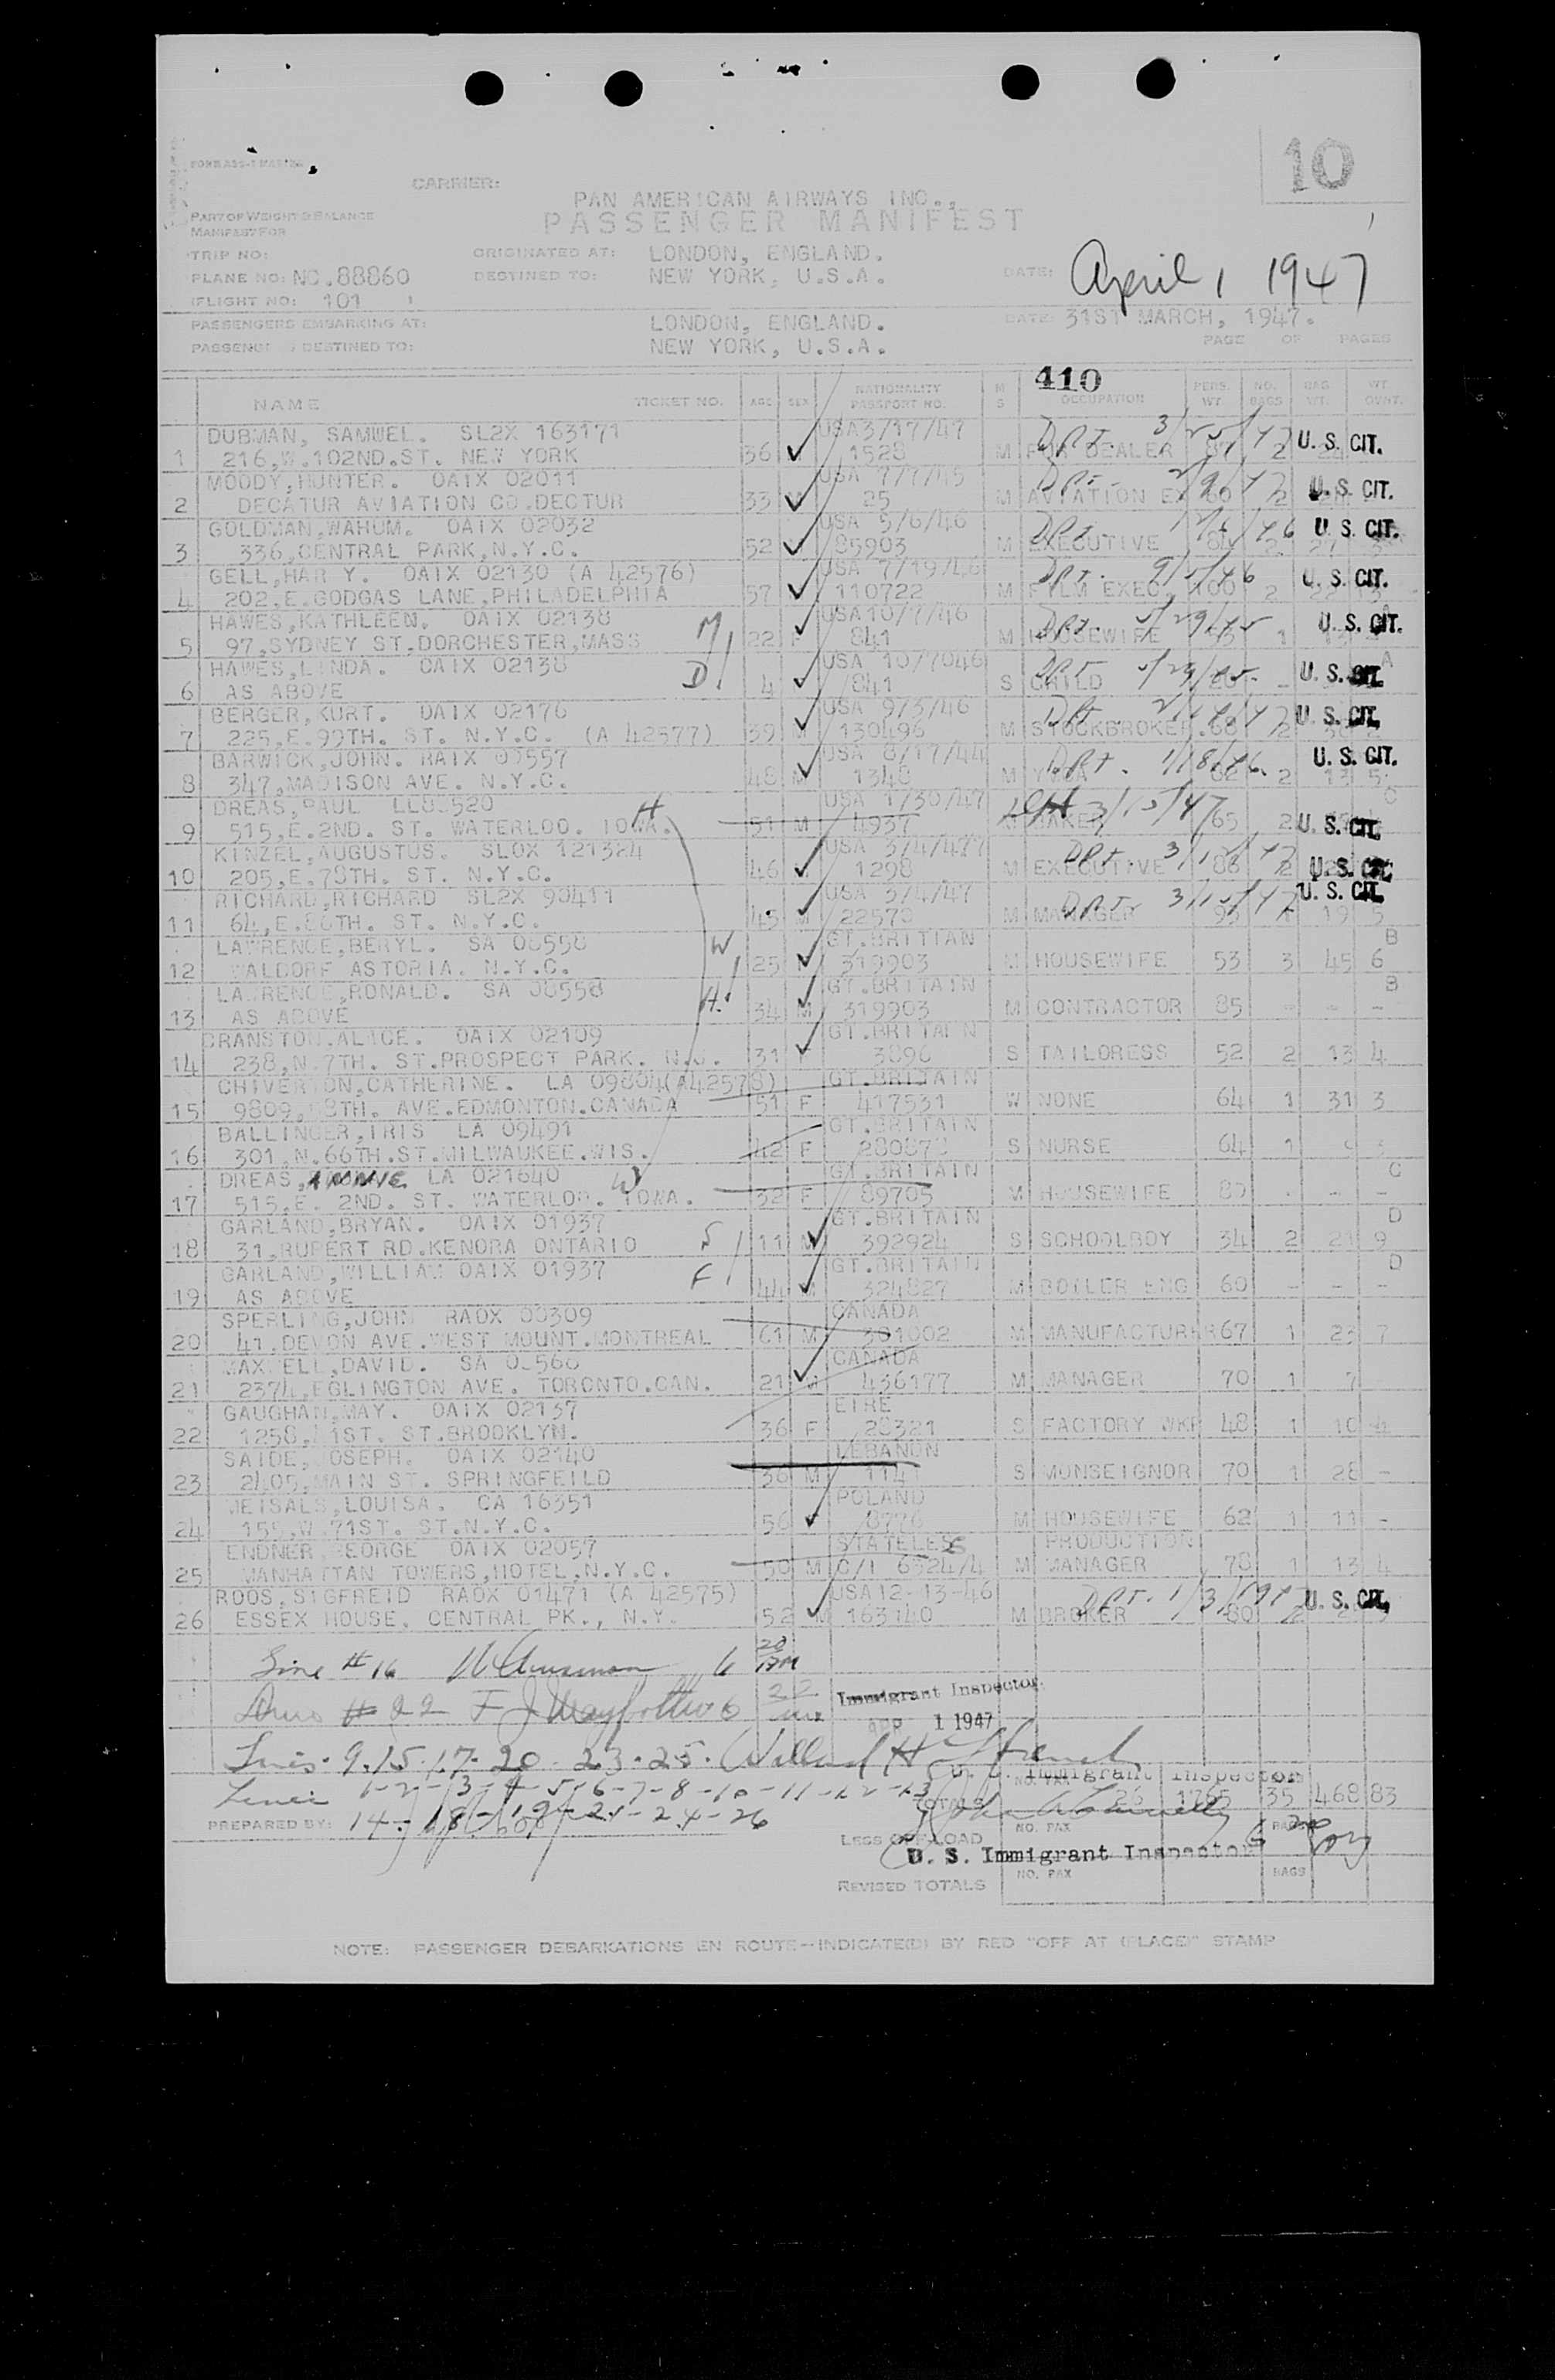 10
CARRIER:
PAN AMERICAN AIRWAYS INC.,
PASSENGER MANIFEST
PART OF WEIGHT & BALANCE
MANIFEST FOR
TRIP NO:
ORIGINATED AT: LONDON, ENGLAND.
PLANE NO: NC.88860
DESTINED TO: NEW YORK, U.S.A.
DATE: April 1 1947
FLIGHT NO: 101
PASSENGERS EMBARKING AT: LONDON, ENGLAND.
DATE: 31ST MARCH, 1947.
DESTINED TO: NEW YORK, U.S.A.
PAGE OF PAGES
410
NAME TICKET NO. AGE SEX NATIONALITY PASSPORT NO. M S OCCUPATION PERS. WT. NO. BAGS BAG WT. WT. OVWT.
DUBMAN, SAMWEL. SL2X 163171 USA3/17/47
1 216,W.102ND.ST. NEW YORK 36 1528 M DEALER 87 2 U. S. CIT.
MOODY,HUNTER. OAIX 02011 USA 7/7/45
2 DECATUR AVIATION CO.DECTUR 33 25 M AVIATION EX 2 U. S. CIT.
GOLDMAN,WAHUM. OAIX 02032 USA 5/6/46
3 336,CENTRAL PARK,N.Y.C. 52 85903 M EXECUTIVE 2 U. S. CIT.
GELL,HAR Y. OAIX 02130 (A 42576) USA 7/19/46
4 202,E.GODGAS LANE,PHILADELPHIA 57 110722 M FILM EXEC. 100 2 U. S. CIT.
HAWES,KATHLEEN. OAIX 02138 M USA10/7/46
5 97,SYDNEY ST.DORCHESTER,MASS 22 F 841 M HOUSEWIFE 1 U. S. CIT.
HAWES,LINDA. OAIX 02138 D USA 10/7046 A
6 AS ABOVE 4 841 S CHILD U. S. CIT.
BERGER,KURT. OAIX 02176 USA 9/3/46
7 225,E.99TH. ST. N.Y.C. (A 42577) 39 M 130496 M STOCKBROKER.68 2 U. S. CIT.
BARWICK,JOHN. RAIX 00557 USA 8/17/44
8 347,MADISON AVE. N.Y.C. 48 M 1348 M 2 13 5 U. S. CIT.
DREAS,PAUL LL08520 H USA 1/30/47 3/15/47 C
9 515,E.2ND. ST. WATERLOO. IOWA. 51 M 4937 M BAKER 65 2 U. S. CIT.
KINZEL,AUGUSTUS. SLOX 121324 USA 3/4/47
10 205,E.78TH. ST. N.Y.C. 46 1298 M EXECUTIVE 2 U. S. CIT.
RICHARD,RICHARD SL2X 90411 USA 3/4/47 U. S. CIT.
11 64,E.86TH. ST. N.Y.C. 45 M 22570 M MANAGER 19 5
LAWRENCE,BERYL. SA 08558 W GT.BRITTIAN B
12 WALDORF ASTORIA. N.Y.C. 25 319903 M HOUSEWIFE 53 3 45 6
LAWRENCE,RONALD. SA 08558 H. GT.BRITAIN B
13 AS ABOVE 34 M 319903 M CONTRACTOR 85 - - -
CRANSTON,ALICE. OAIX 02109 GT.BRITAIN
14 238,N.7TH. ST.PROSPECT PARK. N.J. 31 F 3096 S TAILORESS 52 2 13 4
CHIVERTON,CATHERINE. LA 09804(A42578) GT.BRITAIN
15 9809, 8TH. AVE.EDMONTON.CANADA 51 F 417531 W NONE 64 1 31 3
BALLINGER,IRIS LA 09491 GT.BRITAIN
16 301,N.66TH.ST.MILWAUKEE.WIS. 42 F 280870 S NURSE 64 1
DREAS,ANNIE LA 021640 W GT.BRITAIN C
17 515,E. 2ND. ST. WATERLOO. IOWA. 32 F 89705 M HOUSEWIFE 80 - - -
GARLAND,BRYAN. OAIX 01937 S GT.BRITAIN D
18 31,RUPERT RD.KENORA ONTARIO 11 M 392924 S SCHOOLBOY 34 2 21 9
GARLAND,WILLIAM OAIX 01937 F GT.BRITAIN D
19 AS ABOVE 44 M 324827 M BOILER ENG 60 - - -
SPERLING,JOHN RAOX 00309 CANADA
20 41,DEVON AVE.WEST MOUNT.MONTREAL 61 M 301002 M MANUFACTURER67 1 23 7
MAXWELL,DAVID. SA 08560 CANADA
21 2374,EGLINGTON AVE. TORONTO.CAN. 21 M 436177 M MANAGER 70 1 7
GAUGHAN,MAY. OAIX 02137 EIRE
22 1258, 41ST. ST.BROOKLYN. 36 F 28321 S FACTORY WKR 48 1 10 4
SAIDE,JOSEPH. OAIX 02140 LEBANON
23 2405,MAIN ST. SPRINGFEILD 36 M 1141 S MONSEIGNOR 70 1 28 -
MEISALS,LOUISA. CA 16351 POLAND
24 155,W.71ST. ST.N.Y.C. 56 F 8776 M HOUSEWIFE 62 1 11 -
ENDNER,GEORGE OAIX 02057 STATELESS PRODUCTION
25 MANHATTAN TOWERS,HOTEL,N.Y.C. 50 M C/I 6324/4 M MANAGER 78 1 13 4
ROOS,SIGFREID RAOX 01471 (A 42575) USA12-13-46
26 ESSEX HOUSE. CENTRAL PK., N.Y. 52 M 163140 M BROKER 80 2 U. S. CIT.
Line # 16
Immigrant Inspector
# 22
APR 1 1947
Lines. 9. 15. 17. 20. 23. 25.
U. S. Immigrant Inspector
Lines 1-2-3-4-5-6-7-8-10-11-12-13
TOTALS NO. PAX 26 1765 35 468 83
PREPARED BY: 14-18-19-21-24-26
LESS OFF LOAD NO. PAX BAGS
U. S. Immigrant Inspector
REVISED TOTALS NO. PAX BAGS
NOTE: PASSENGER DEBARKATIONS EN ROUTE--INDICATE(D) BY RED "OFF AT (PLACE)" STAMP